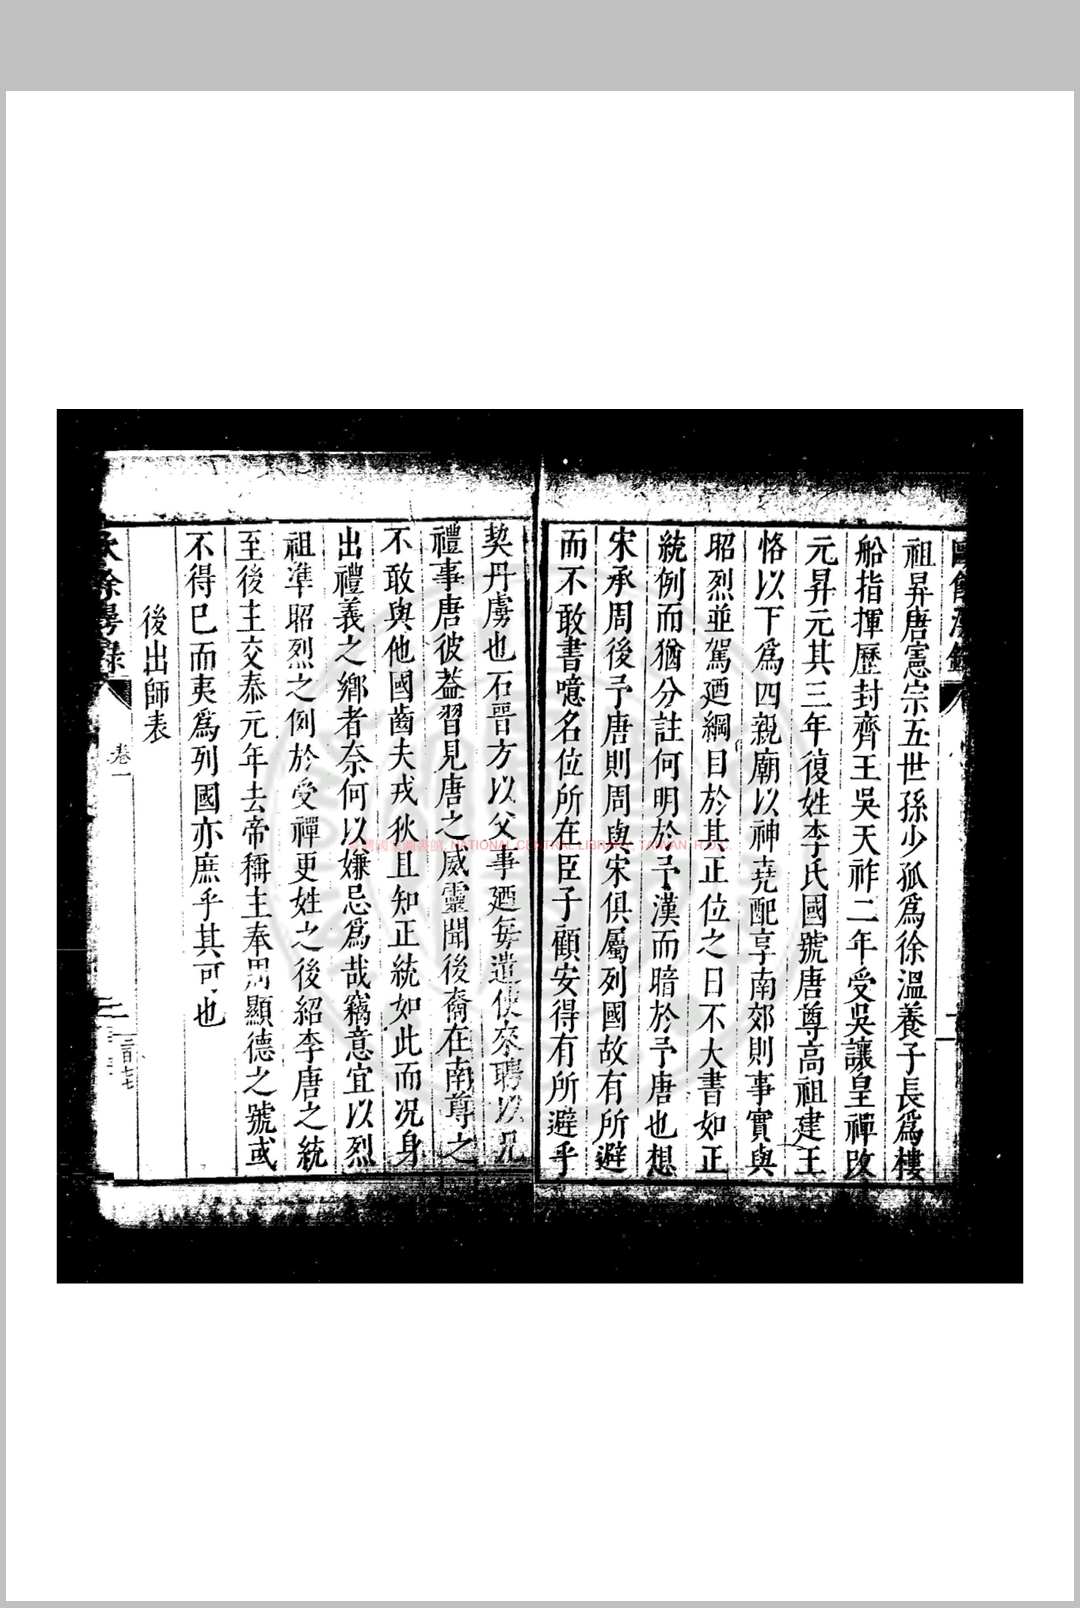 祖昇唐憲宗五世孫少孤爲徐溫養子長爲樓
船指揮歷封齊王吳天祚二年受吳讓皇禪改
元昇元其三年復姓李氏國號唐尊高祖建王
恪以下爲四親廟以神堯配享南郊則事實與
昭烈並駕廼綱目於其正位之日不大書如正
統例而猶分註何明於予漢而暗於予唐也想
宋承周後予唐則周與宋俱屬列國故有所避
而不敢書噫名位所在臣子顧安得有所避乎
契丹虜也石晉方以父事廼每遣使來聘以兄
禮事唐彼葢習見唐之威靈聞後裔在南尊之
不敢與他國齒夫戎狄且知正統如此而况身
出禮義之鄉者奈何以嫌忌爲哉竊意宜以烈
祖準昭烈之例於受禪更姓之後紹李唐之統
至後主交泰元年去帝稱主奉周顯德之號或
不得已而夷爲列國亦庶乎其可也
後出師表
卷一
NATIONAL CENTRAL LIBRARY, TAIWAN R.O.C.